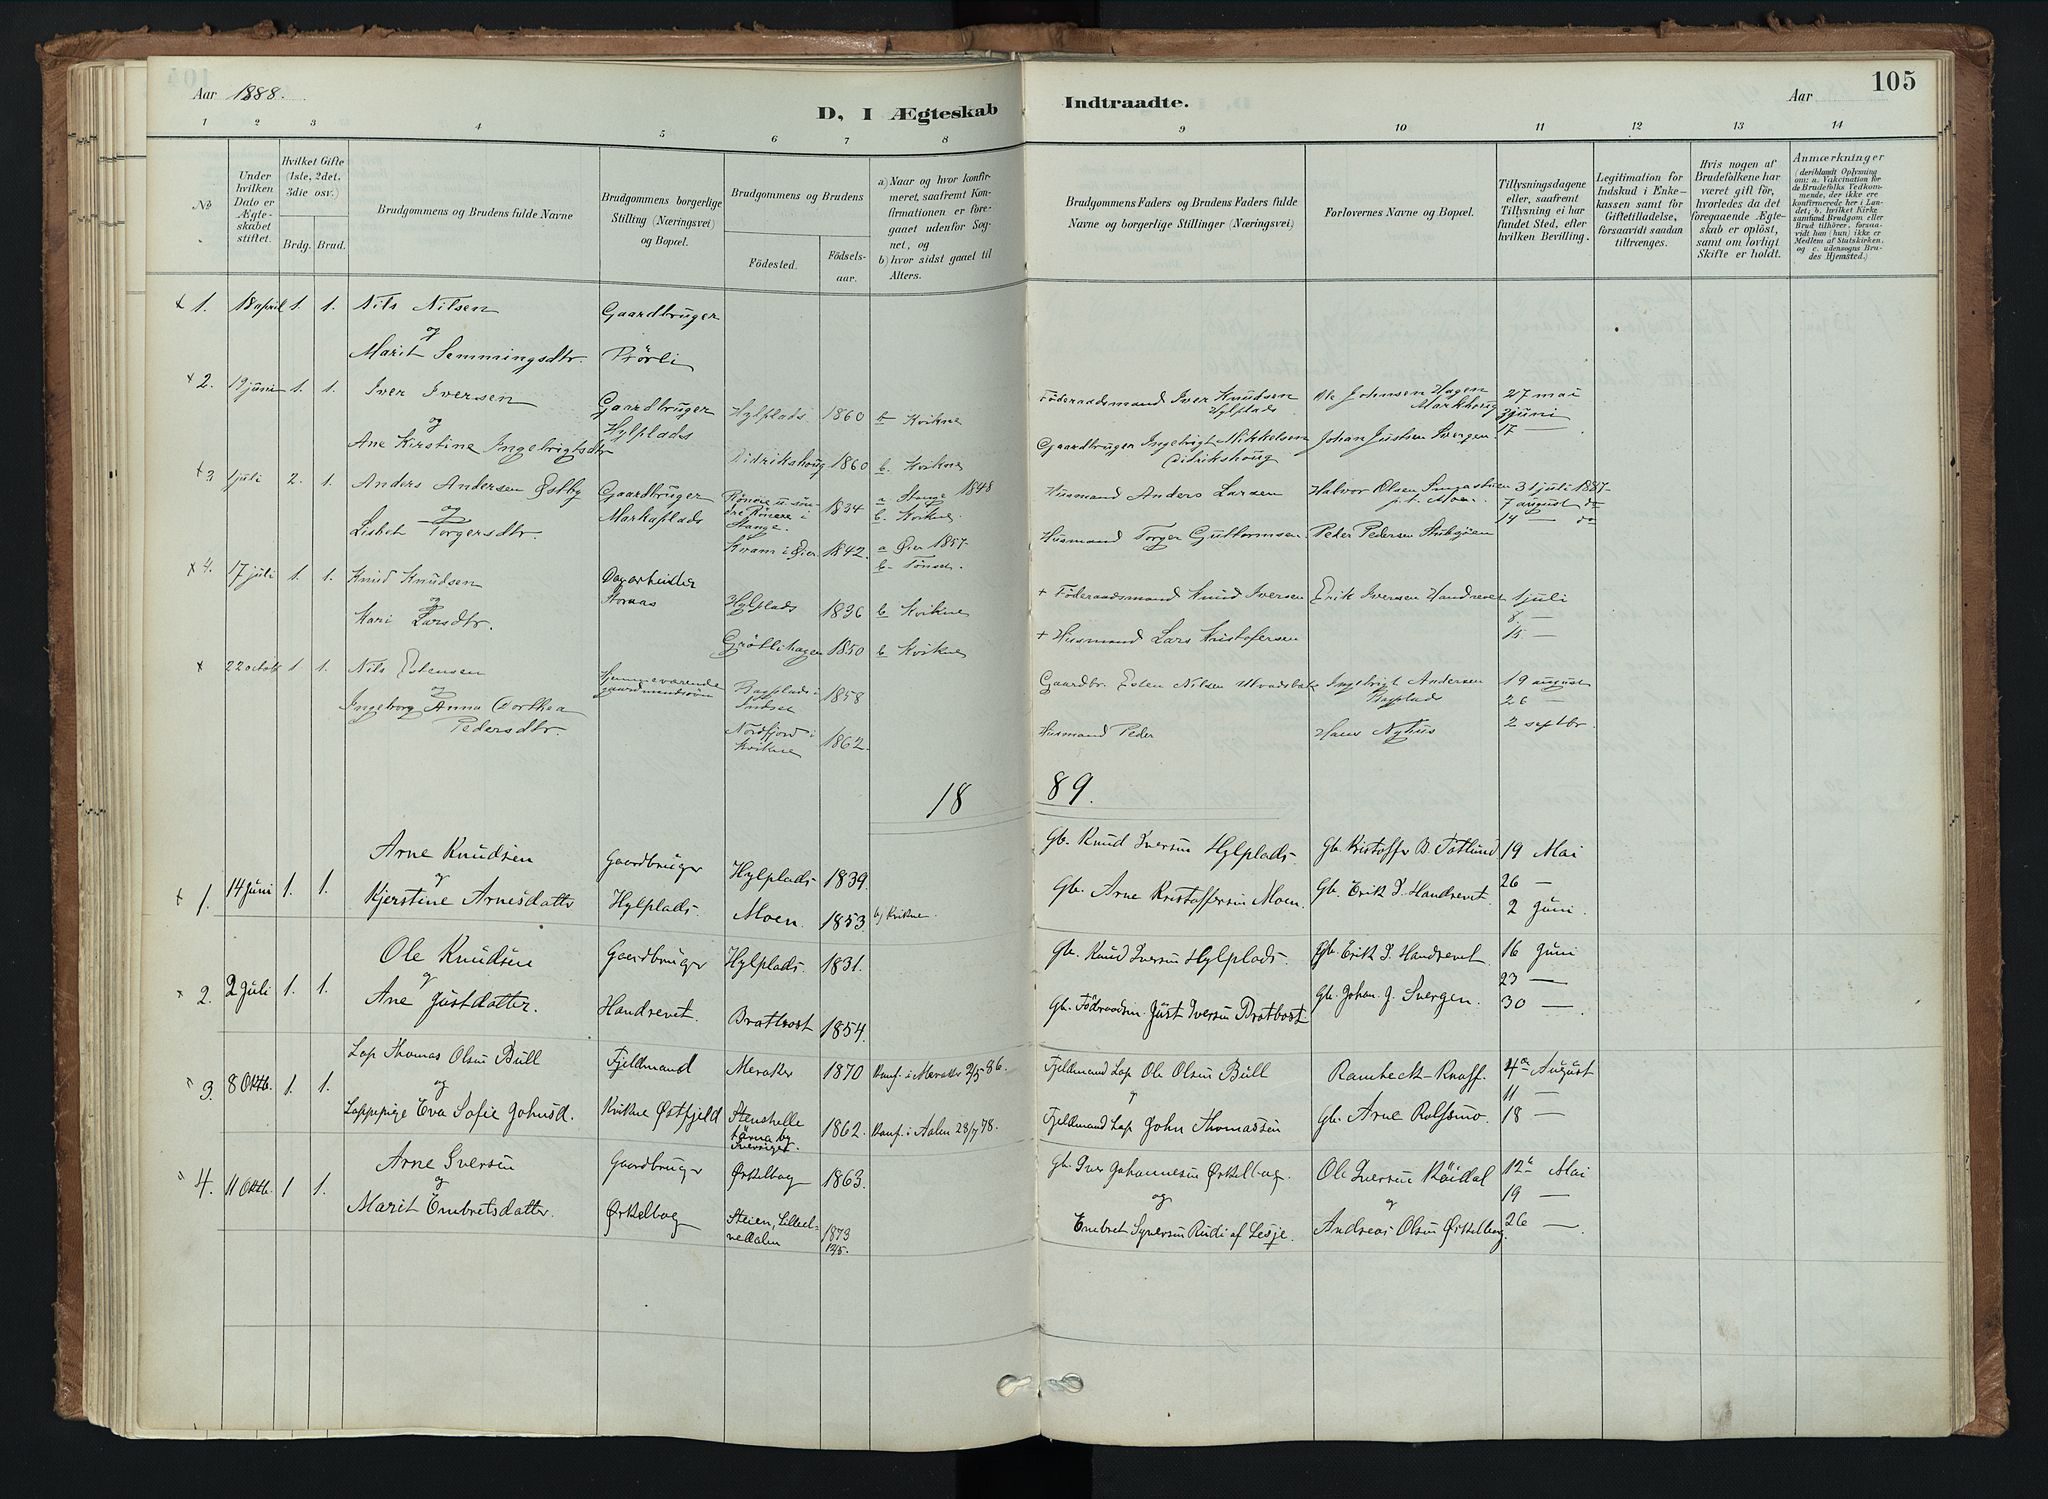 Aar 1888.
D, I Ægteskab Indtraadte.
Aar
105
1 2 3 4 5 6 7 8 9 10 11 12 13 14
No
Under hvilken Dato er Ægteskabet stiftet.
Hvilket Gifte (1ste, 2det, 3die osv.)
Brdg. Brud.
Brudgommens og Brudens fulde Navne
Brudgommens borgerlige Stilling (Næringsvei) og Bopæl.
Brudgommens og Brudens
Födested. Födselsaar.
a) Naar og hvor konfirmeret, saafremt Konfirmationen er foregaaet udenfor Sognet, og
b) hvor sidst gaaet til Alters.
Brudgommens Faders og Brudens Faders fulde Navne og borgerlige Stillinger (Næringsvei)
Forlovernes Navne og Bopæl.
Tillysningsdagene eller, saafremt Tillysning ei har fundet Sted, efter hvilken Bevilling.
Legitimation for Indskud i Enkekassen samt for Giftetilladelse, forsaavidt saadan tiltrænges.
Hvis nogen af Brudefolkene har været gift för, hvorledes da det foregaaende Ægteskab er oplöst, samt om lovligt Skifte er holdt.
Anmærkninger (deriblandt Oplysning om: a. Vakcination for de Brudefolks Vedkommende, der ikke ere konfirmerede her i Landet; b. hvilket Kirkesamfund Brudgom eller Brud tilhörer, forsaavidt han (hun) ikke er Medlem af Statskirken, og c. udensogns Brudes Hjemsted.)
+ 1. 18 april 1. 1. Nils Nilsen Gaardbruger
og
Marit Semmingsdtr.
+ 2. 19 juni 1. 1. Iver Iversen Gaardbruger Hylplads 1860 Kvikne Föderaadsmand Iver Knudsen Ole Johnsen Hagen 27 mai
og Hylplads Hylplads Markhoug 3 juni
Ane Kirstine Ingebrigtsdtr Didrikshoug 1860 b. Kvikne Gaardbruger Ingebrigt Mikkelsen Johan Justsen Svergen 17 —
Didrikshoug
+ 3 1 juli 2. 1. Anders Andersen Östby Gaardbruger 1834 a Stange 1848 Husmand Anders Larsen Halvor Olsen 31 juli 1887
og Markaplads Stange. b. Kvikne. p. t. Moen. 7 august do
Lisbet Torgersdtr. Kvam i Øier 1842. a Øier 1857 Husmand Torger Guttormsen Peder Pedersen 14 — do
b. Tönset.
+ 4. 17 juli 1. 1. Knud Knudsen Dagarbeider Hylplads 1836 b Kvikne + Föderaadsmand Knud Iversen Erik Iversen Handrevet 1 juli
og Stornæs 8. —
Kari Larsdtr. Grötlihagen 1850 b Kvikne + Husmand Lars Kristofersen 15 —
+ 22 octob 1 1. Nils Estensen Hjemmeværende gaardmandssön 1858 Gaardbr. Esten Nilsen Ingebrigt Andersen 19 august
og 26 —
Ingeborg Anna Dorthea Pedersdtr. Nordfjord i Kvikne 1862. Husmand Peder Hans Nyhus 2 septbr.
18 89.
+ 1. 14 Juni 1. 1. Arne Knudsen Gaardbruger Hylplads 1839. Gb. Knud Iversen Hylplads. Gb. Kristoffer B. Totlund 19 Mai
og 26 —
Kjerstine Arnesdatter Hylplads. Moen. 1853. b) Kvikne. Gb. Arne Kristoffersen Moen. Gb. Erik I. Handrevet. 2 Juni.
+ 2. 2 Juli 1. 1. Ole Knudsen Gaardbruger Hylplads. 1831. Gb. Knud Iversen Hylplads. Gb. Erik I. Handrevet 16 Juni
og 23 —
Ane Justdatter. Handrevet. Bratbost 1854. Gb. Föderaadsm. Just Iversen Bratbost. Gb. Johan. J. Svergen. 30 —
3. 8 Oktb. 1. 1. Lap Thomas Olsen Bull Fjeldmand Meraker 1870 Konf. i Meraker 2/5 86. Fjeldmand Lap Ole Olsen Bull Rambeck-Knoff. 4de August
og og 11 —
Lappepige Eva Sofie Johnsd. Kvikne Østfjeld Sverige. 1862. Konf. i Aalen 28/7 78. Fjeldmand Lap John Thomassen Gb. Arne Rolfsmo. 18 —
4. 11 Oktb. 1 1. Arne Iversen Gaardbruger Ørkelbog 1863. Gb. Iver Johannesen Ørkelbog. Ole Iversen Röidal 12te Mai
og og og 19 —
Marit Embretsdatter. Ørkelbog Steien, Lilleelvedalen 1873 Embret Syversen Rudi af Lesje. Andreas Olsen Ørkelbog. 26 —